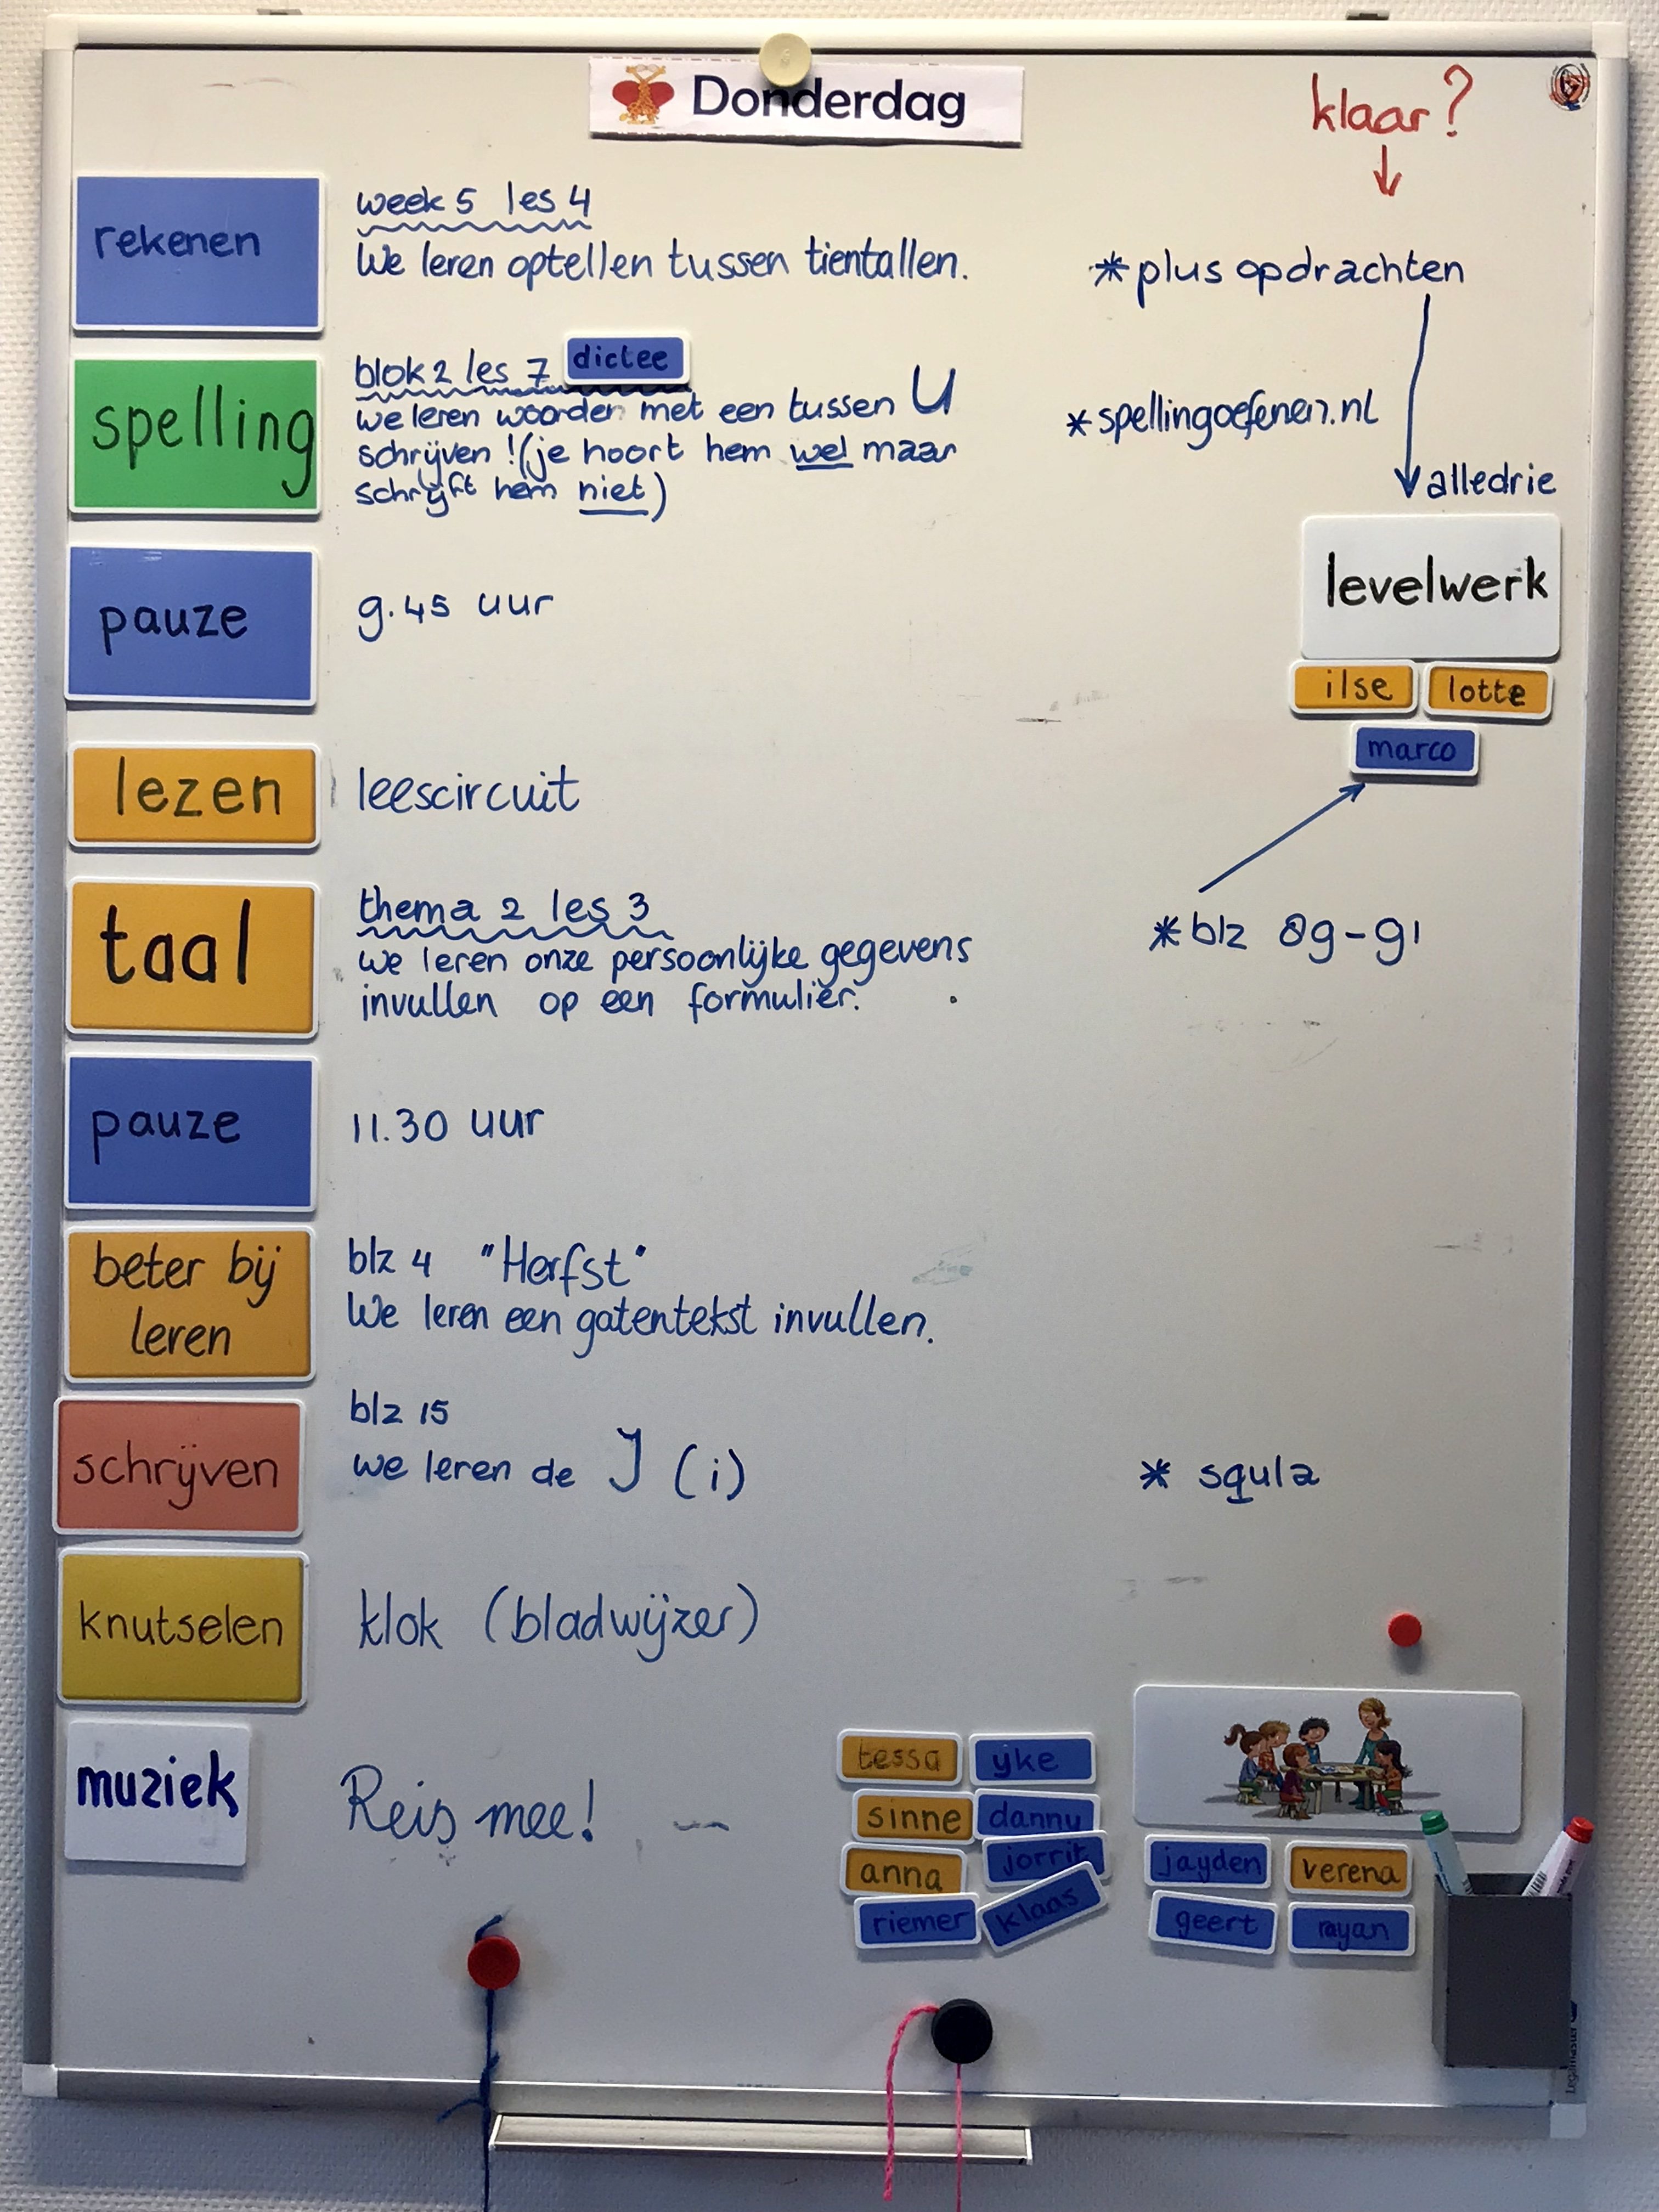 Donderdag
klaar?
rekenen
week 5 les 4
We leren optellen tussen tientallen.
* plus opdrachten
spelling
blok 2 les 7 dictee
we leren woorden met een tussen U
schrijven! (je hoort hem wel maar
schrijft hem niet)
* spellingoefenen.nl
alledrie
levelwerk
ilse lotte
marco
pauze
9.45 uur
lezen
leescircuit
taal
thema 2 les 3
we leren onze persoonlijke gegevens
invullen op een formulier.
* blz 89-91
pauze
11.30 uur
beter bij
leren
blz 4 "Herfst"
We leren een gatentekst invullen.
schrijven
blz 15
we leren de J (i)
* squla
knutselen
klok (bladwijzer)
muziek
Reis mee!
tessa yke
sinne danny
anna jorrit
riemer klaas
jayden verena
geert rayan
Legamaster